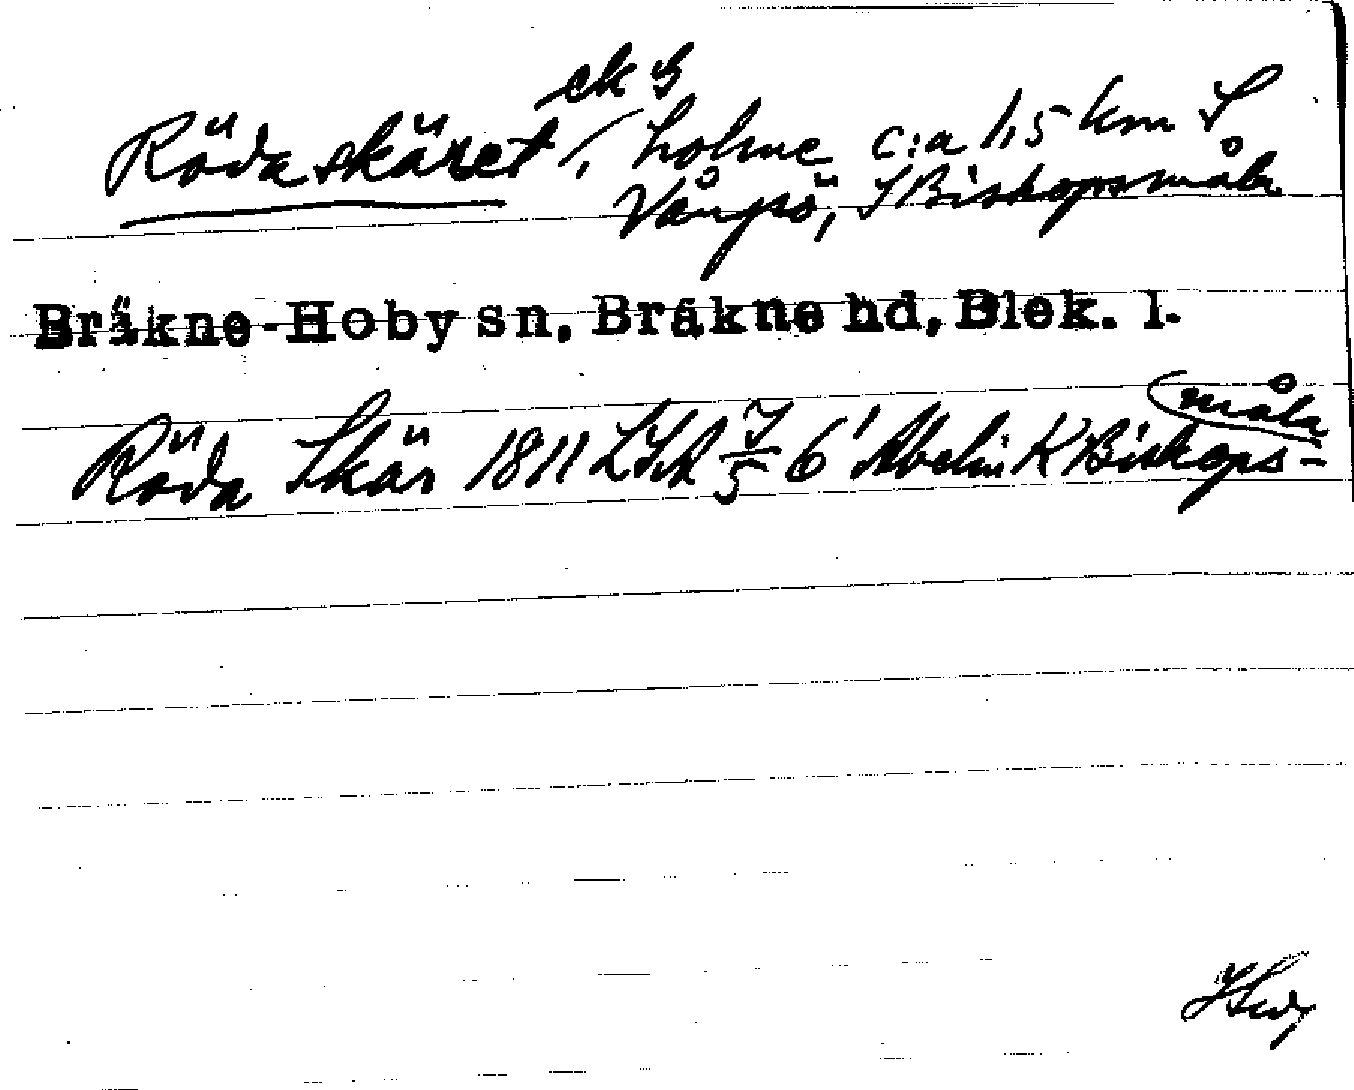 ek S
Röda skäret, holme c:a 1,5 km S
Vångsö, S Biskopsmåla
Bräkne-Hoby sn, Bräkne hd, Blek. l.
måla
Röda Skär 1811 LSA 5 6' Abelin K Biskops-